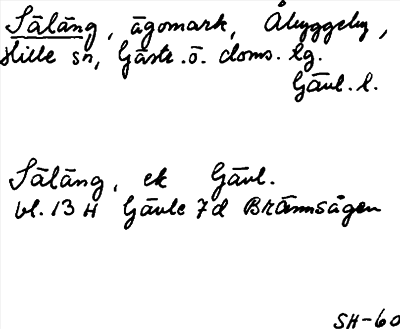 Säläng, ägomark, Åbyggeby,
Hille sn, Gästr. ö. doms. lg.
Gävl. l.
Säläng, ek Gävl.
bl. 13 H Gävle 7d Brännsågen
SH-60